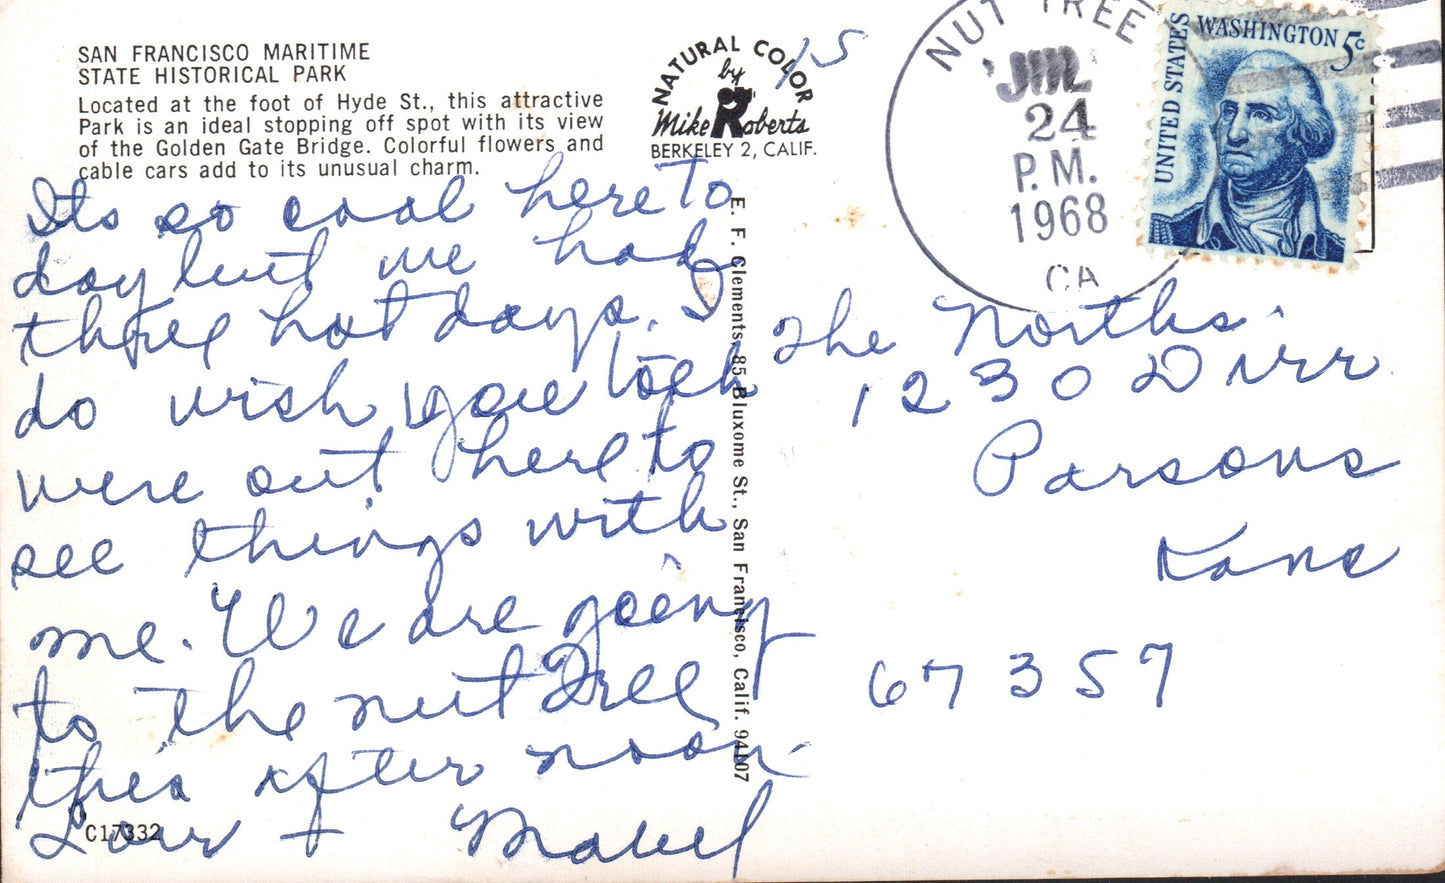 SAN FRANCISCO MARITIME
STATE HISTORICAL PARK
Located at the foot of Hyde St., this attractive
Park is an ideal stopping off spot with its view
of the Golden Gate Bridge. Colorful flowers and
cable cars add to its unusual charm.
NATURAL COLOR
by
Mike Roberts
BERKELEY 2, CALIF.
15
NUT TREE
JUL
24
P.M.
1968
CA
UNITED STATES
WASHINGTON 5c
Its so cool here to
day but we had
three hot days. I
do wish you both
were out here to
see things with
me. We are going
to the nut Tree
this after noon.
Love + Mabel
C17332
E. F. Clements, 85 Bluxome St., San Francisco, Calif. 94107
The Norths.
1230 Dirr
Parsons
Kans
67357